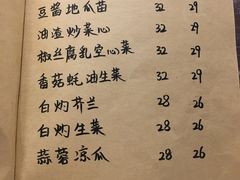 豆酱地瓜苗 32 29
油渣炒菜心 32 29
椒丝腐乳空心菜 32 29
香菇蚝油生菜 32 29
白灼芥兰 28 26
白灼生菜 28 26
蒜蓉凉瓜 28 26